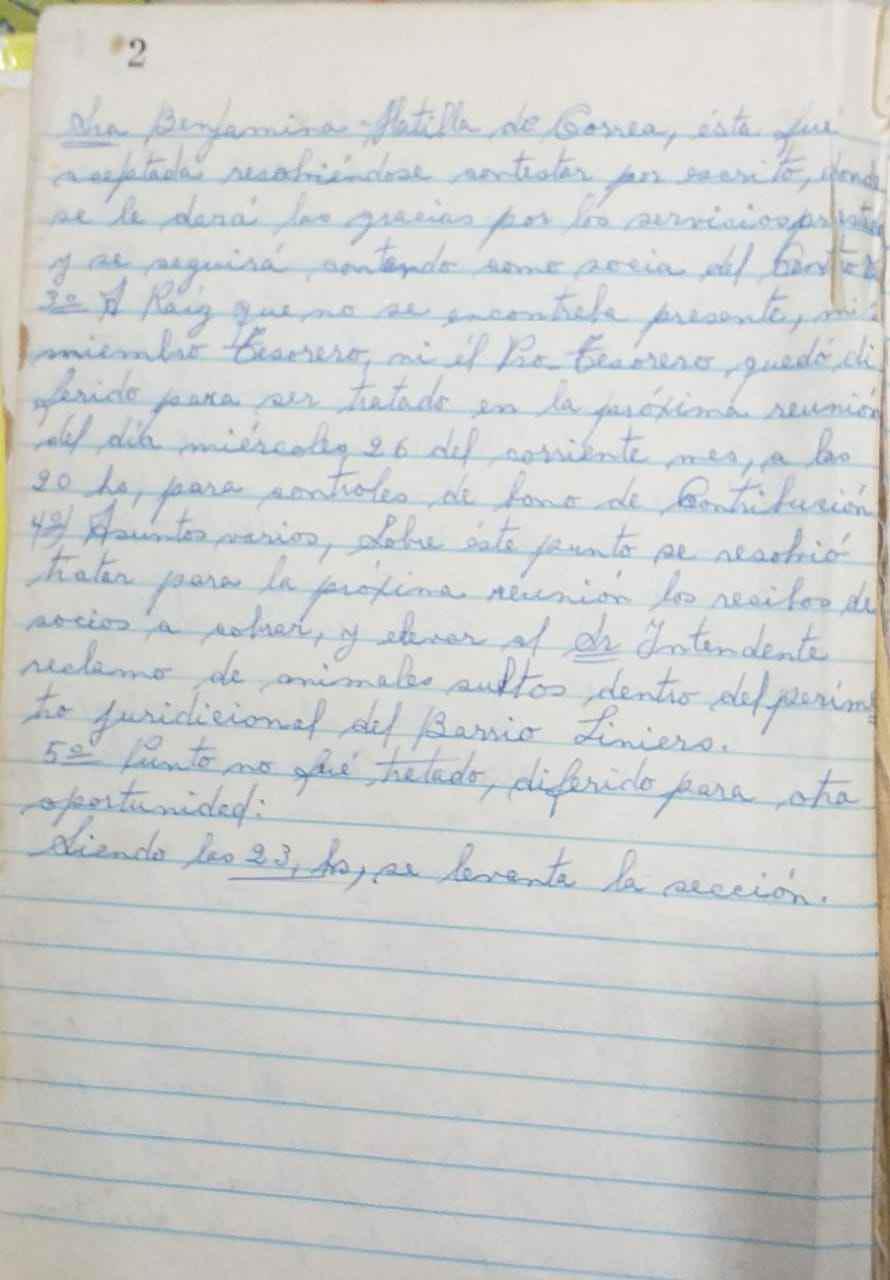 2
Sra Benjamina Matilla de Correa, ésta fué
aceptada resolviéndose contestar por escrito, donde
se le dará las gracias por los servicios
y se seguirá contando como socia del Centro
3º A Raíz que no se encontraba presente, ni
miembro Tesorero, ni él Pro-Tesorero, quedó di
ferido para ser tratado en la próxima reunión
del día miércoles 26 del corriente mes, a las
20 hs, para controles de bono de Contribución
4º) Asuntos varios, Sobre éste punto se resolvió
tratar para la próxima reunión los recibos de
socios a cobrar, y elevar al Sr Intendente
reclamo de animales sultos dentro del períme
tro juridicional del Barrio Liniers.
5º Punto no fué tratado, diferido para otra
oportunidad:
Siendo las 23, hs, se levanta la sección.